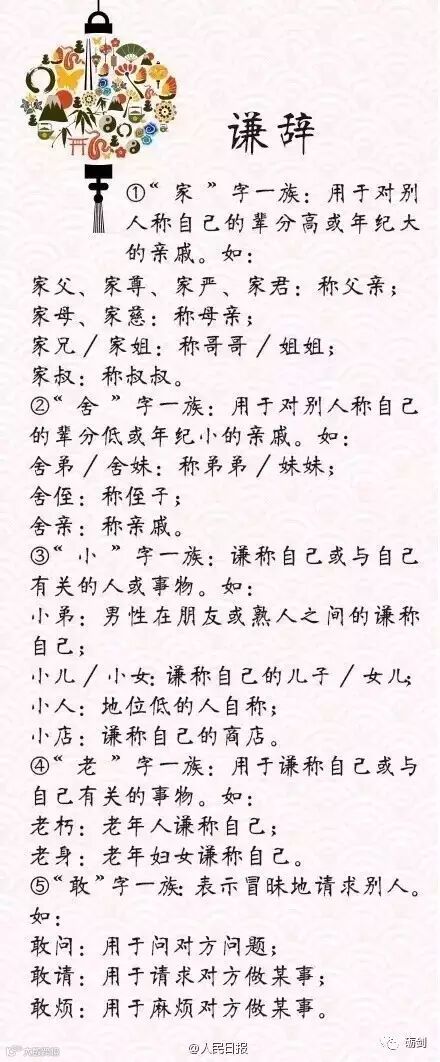 谦辞
①“家”字一族：用于对别
人称自己的辈分高或年纪大
的亲戚。如：
家父、家尊、家严、家君：称父亲；
家母、家慈：称母亲；
家兄／家姐：称哥哥／姐姐；
家叔：称叔叔。
②“舍”字一族：用于对别人称自己
的辈分低或年纪小的亲戚。如：
舍弟／舍妹：称弟弟／妹妹；
舍侄：称侄子；
舍亲：称亲戚。
③“小”字一族：谦称自己或与自己
有关的人或事物。如：
小弟：男性在朋友或熟人之间的谦称
自己；
小儿／小女：谦称自己的儿子／女儿；
小人：地位低的人自称；
小店：谦称自己的商店。
④“老”字一族：用于谦称自己或与
自己有关的事物。如：
老朽：老年人谦称自己；
老身：老年妇女谦称自己。
⑤“敢”字一族：表示冒昧地请求别人。
如：
敢问：用于问对方问题；
敢请：用于请求对方做某事；
敢烦：用于麻烦对方做某事。
@人民日报
砺剑